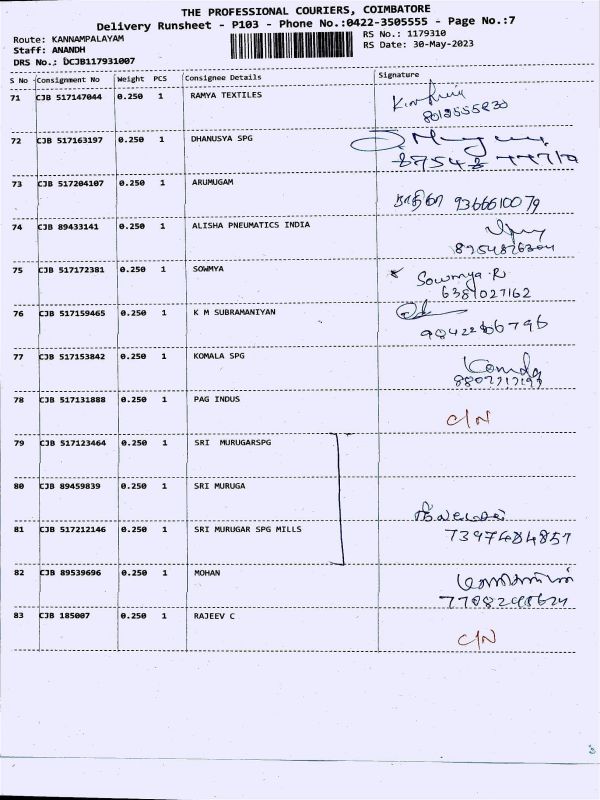 THE PROFESSIONAL COURIERS, COIMBATORE
Delivery Runsheet - P103 - Phone No.:0422-3505555 - Page No.:7
Route: KANNAMPALAYAM
Staff: ANANDH
DRS No.: DCJB117931007
RS No.: 1179310
RS Date: 30-May-2023
S No Consignment No Weight PCS Consignee Details Signature
71 CJB 517147044 0.250 1 RAMYA TEXTILES
72 CJB 517163197 0.250 1 DHANUSYA SPG
73 CJB 517204107 0.250 1 ARUMUGAM
9366610079
74 CJB 89433141 0.250 1 ALISHA PNEUMATICS INDIA
75 CJB 517172381 0.250 1 SOWMYA
Sowmya.R
6381027162
76 CJB 517159465 0.250 1 K M SUBRAMANIYAN
77 CJB 517153842 0.250 1 KOMALA SPG
78 CJB 517131888 0.250 1 PAG INDUS
C/N
79 CJB 517123464 0.250 1 SRI MURUGARSPG
80 CJB 89459839 0.250 1 SRI MURUGA
81 CJB 517212146 0.250 1 SRI MURUGAR SPG MILLS
7397484857
82 CJB 89539696 0.250 1 MOHAN
83 CJB 185007 0.250 1 RAJEEV C
C/N